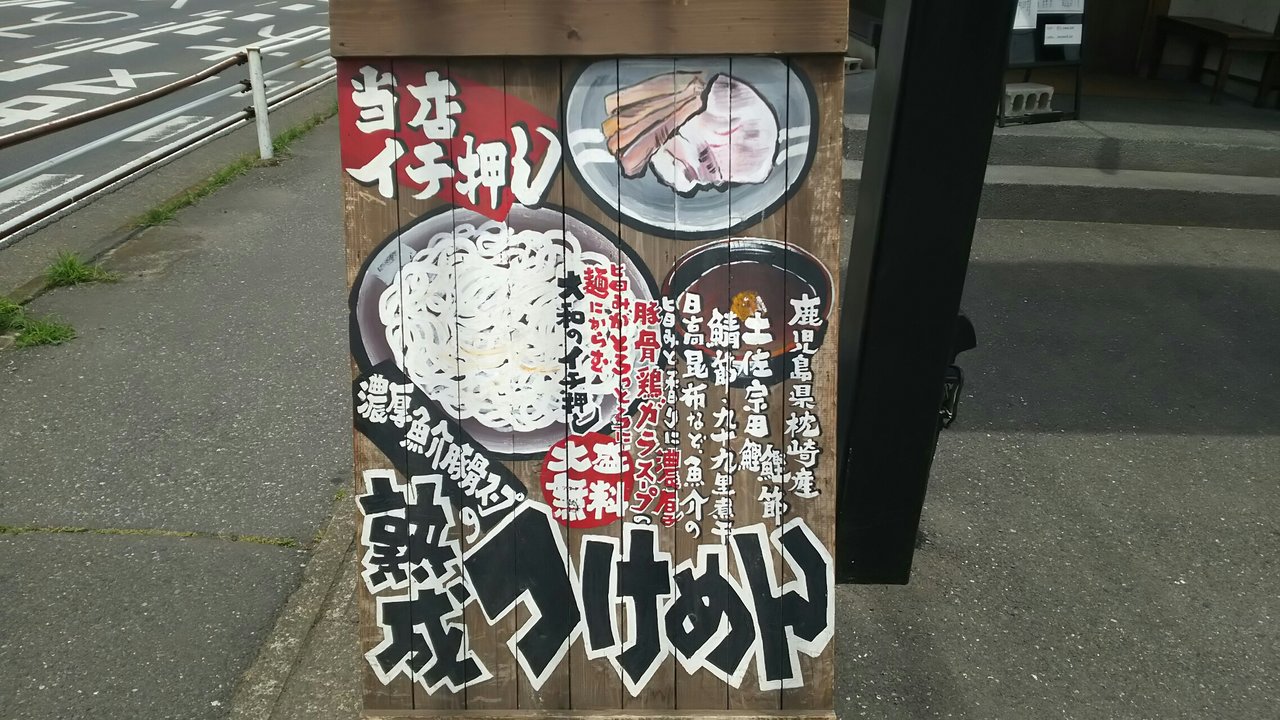 当店
イチ押し
鹿児島県枕崎産
鰹節
土佐宗田鰹
鯖節、九十九里煮干
日高昆布など、魚介の
旨みと香りに濃厚
豚骨鶏ガラスープの
旨みがとろっとろに
麺にからむ
大和のイチ押し
大盛
無料
濃厚魚介豚骨スープの
熟成
つけめん